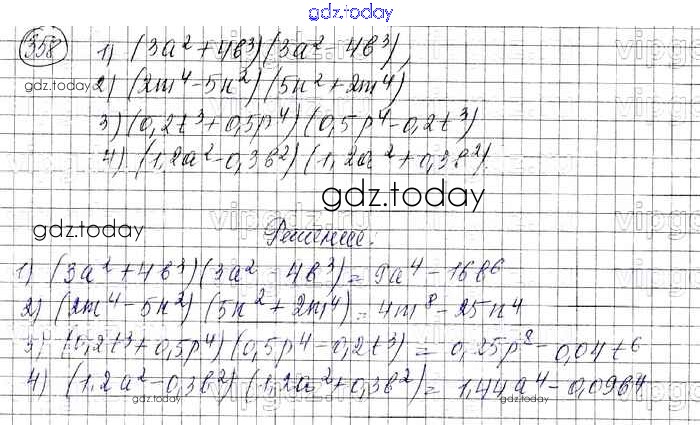 gdz.today
358 1) (3a² + 4b³)(3a² - 4b³)
gdz.today 2) (2m⁴ - 5n²)(5n² + 2m⁴)
3) (0,2t³ + 0,5p⁴)(0,5p⁴ - 0,2t³)
4) (1,2a² - 0,3b²)(1,2a² + 0,3b²)
gdz.today
gdz.today
Решение:
1) (3a² + 4b³)(3a² - 4b³) = 9a⁴ - 16b⁶
2) (2m⁴ - 5n²)(5n² + 2m⁴) = 4m⁸ - 25n⁴
3) (0,2t³ + 0,5p⁴)(0,5p⁴ - 0,2t³) = 0,25p⁸ - 0,04t⁶
4) (1,2a² - 0,3b²)(1,2a² + 0,3b²) = 1,44a⁴ - 0,09b⁴
gdz.today gdz.today